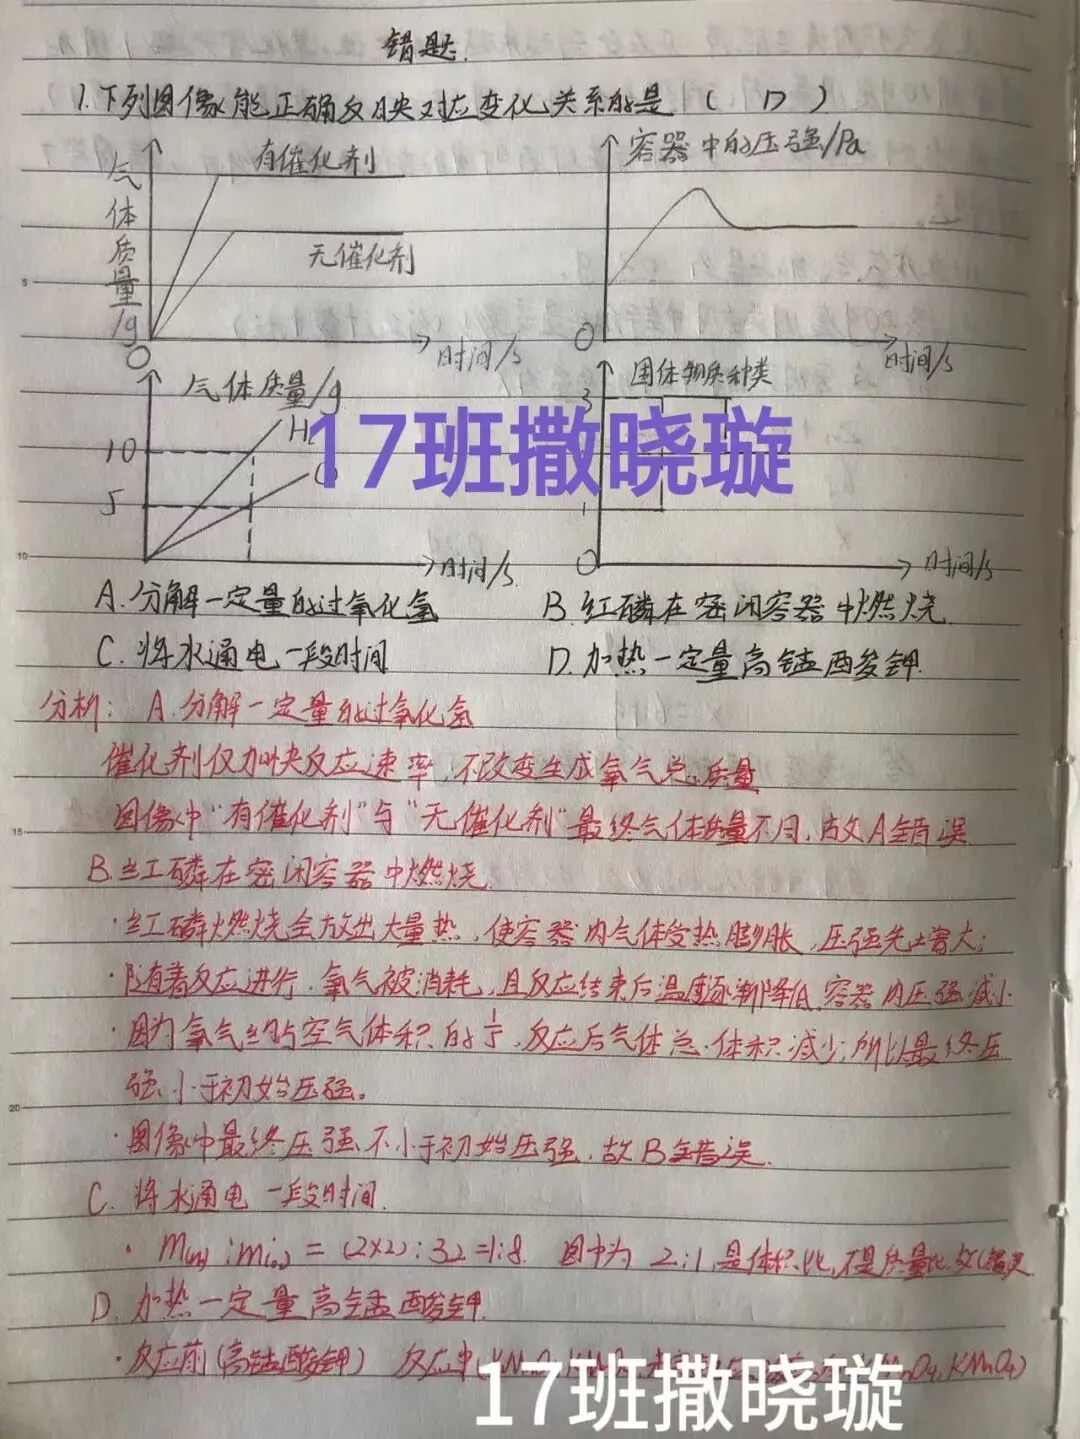 错题.
1.下列图像能正确反映对应变化关系的是（D）
气体质量/g
有催化剂
无催化剂
O
时间/s
容器中的压强/Pa
O
时间/s
气体质量/g
10
5
时间/s
固体物质种类
3
1
O
时间/s
17班撒晓璇
A.分解一定量的过氧化氢
B.红磷在密闭容器中燃烧.
C.将水通电一段时间
D.加热一定量高锰酸钾.
分析: A.分解一定量的过氧化氢
催化剂仅加快反应速率,不改变生成氧气总质量
图像中"有催化剂"与"无催化剂"最终气体质量不同,故A错误
B.红磷在密闭容器中燃烧.
·红磷燃烧会放出大量热,使容器内气体受热膨胀,压强先增大;
·随着反应进行,氧气被消耗,且反应结束后温度逐渐降低,容器内压强减小
·因为氧气约占空气体积的1/5,反应后气体总体积减少,所以最终压
强小于初始压强。
·图像中最终压强不小于初始压强,故B错误.
C.将水通电一段时间.
·m(H₂):m(O₂)=(2×2):32=1:8 图中为2:1,是体积比,不是质量比,故C错误
D.加热一定量高锰酸钾.
·反应前(高锰酸钾) 反应中(KMnO₄
17班撒晓璇
5
10
15
20